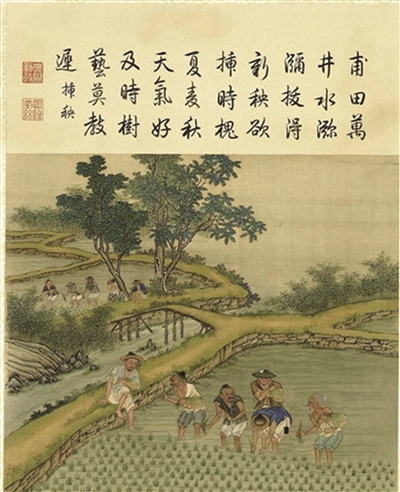 甫田萬
井水瀰
瀰拔得
新秧欲
插時槐
夏麦秋
天氣好
及時樹
藝莫教
遲 插秧